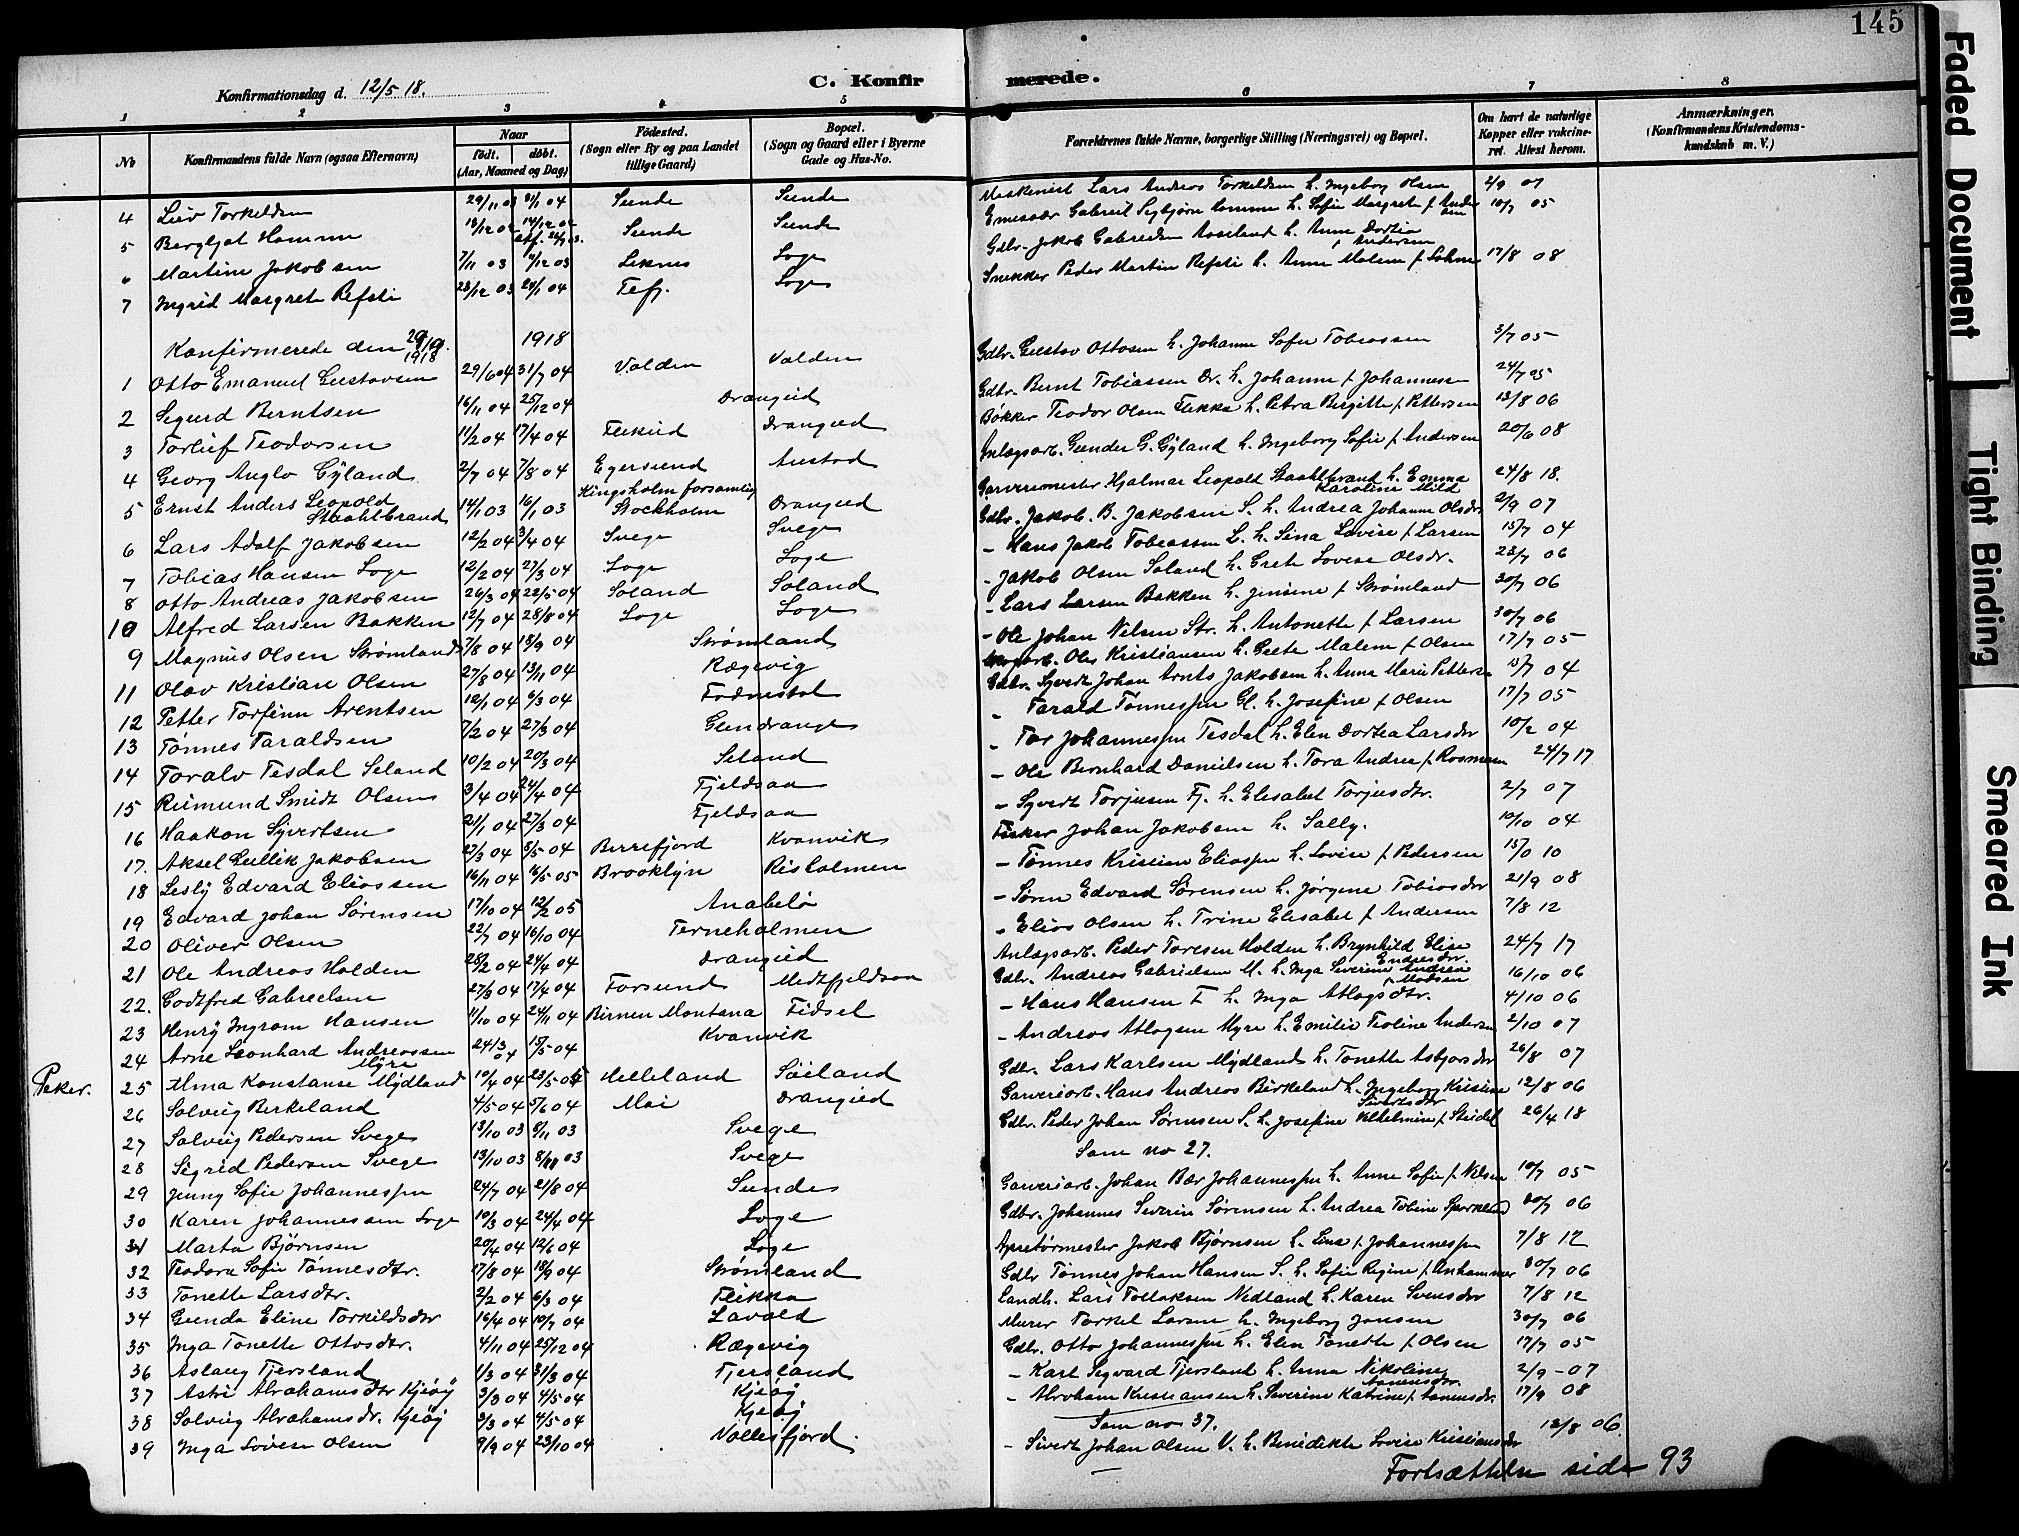 145
Konfirmationsdag d. 12/5 18.
C. Konfirmerede.
1 2 3 4 5 6 7 8
No
Konfirmandens fulde Navn (ogsaa Efternavn)
Naar
födt. döbt.
(Aar, Maaned og Dag)
Födested.
(Sogn eller By og paa Landet tillige Gaard)
Bopæl.
(Sogn og Gaard eller i Byerne Gade og Hus-No.
Forældrenes fulde Navne, borgerlige Stilling (Næringsvei) og Bopæl.
Om havt de naturlige Kopper eller vaccineret. Attest herom.
Anmærkninger.
(Konfirmandens Kristendomskundskab m. V.)
4 Liv Torkeldsen 29/11 03 Sunde Sunde Maskinist Lars Andreas Torkeldsen h. Ingeborg Olsen 2/9 07
5 Bergljot Homme Sunde Sunde Gabriel Homme h. Sofie Margret f. Andersen 05
6 Martine Jakobsen 7/11 03 /12 03 Leknes Loge Gdbr. Jakob Gabrielsen h. Anne Dortea Andersen
7 Ingrid Margrete Refsti 28/12 03 24/1 04 Fefj. Loge Snekker Peder Martin Refsti h. Anne Malene f. 17/8 08
Konfirmerede den 29/9. 1918 1918
1 Otto Emanuel Gustavsen 29/6 04 31/7 04 Valden Valden Gdbr. Gustav Ottosen h. Johanne Sofie Tobiassen 5/7 05
2 Sigurd Berntsen 16/11 04 25/12 04 Drangeid Gdbr. Bernt Tobiassen Dr. h. Johanne f. Johannesen 24/7 05
3 Torleif Teodorsen 11/2 04 17/4 04 Flikeid Drangeid Bøkker Teodor Olsen Flikka h. Petra Birgitte f. Pettersen 13/8 06
4 Georg Anglo Gÿland 2/7 04 7/8 04 Egersund Austad Anlægsarb. Gunder G. Gÿland h. Ingeborg Sofie f. Andersen 20/6 08
5 Ernst Anders Leopold Staahlbrand 14/1 03 16/1 03 Kingsholm forsamling Stockholm Drangeid Garverimester Hjalmar Leopold Staahlbrand h. Emma Karoline Mild 24/8 18.
6 Lars Adolf Jakobsen 12/2 04 3/4 04 Svege Svege Gdbr. Jakob B. Jakobsen S. h. Andrea Johanne Olsdtr 2/9 07
7 Tobias Hansen Loge 12/2 04 27/3 04 Loge Loge - Hans Jakob Tobiassen L. h. Sina Lovise f. Larsen 15/7 04
8 Otto Andreas Jakobsen 26/3 04 22/5 04 Soland Soland - Jakob Olsen Soland h. Grete Lovise Olsdr. 28/7 06
10 Alfred Larsen Bakken 12/7 04 28/8 04 Loge Loge - Lars Larsen Bakken h. Jensine f. Strømland 30/7 06
9 Magnus Olsen Strømland 7/8 04 18/9 04 Strømland - Ole Johan Nilsen Str. h. Antonette f. Larsen 30/7 06
11 Olav Kristian Olsen 27/8 04 13/11 04 Rægevig Ole Kristiansen h. Grete Malene f. Olsen 17/7 05
12 Petter Torfinn Arentsen 12/1 04 6/3 04 Fodnestol Gdbr. Syvert Johan Arnts Jakobsen h. Anne Marie Pettersen 15/7 04
13 Tønnes Taraldsen 7/2 04 27/3 04 Gundrange - Tarald Tønnessen Gl. h. Josefine f. Olsen 17/7 05
14 Toralv Tesdal Seland 10/2 04 20/3 04 Seland - Tor Johannessen Tesdal h. Elen Dortea Larsdtr 10/2 04
15 Reimund Smidt Olsen 3/4 04 24/4 04 Fjeldsaa - Ole Bernhard Danielsen h. Tora Andrea f. Rasmussen 24/7 17
16 Haakon Sÿvertsen 21/1 04 27/3 04 Fjeldsaa - Syvert Torjusen Fj. h. Elisabet Torjusdtr. 2/7 07
17. Aksel Gullik Jakobsen 27/3 04 8/5 04 Berrefjord Kvanvik Fisker Johan Jakobsen h. Sally. 10/10 04
18 Leslÿ Edvard Eliassen 16/11 04 /5 05 Brooklÿn Risholmen - Tønnes Kristian Eliassen h. Lovise f. Pedersen 10
19 Edvard Johan Sørensen 17/10 04 12/2 05 Anabelø - Søren Edvard Sørensen h. Jørgine Tobiasdtr 21/9 08
20 Oliver Olsen 22/7 04 16/10 04 Terneholmen - Elias Olsen h. Trine Elisabet f. Andersen 7/8 12
21 Ole Andreas Holden 28/2 04 24/4 04 Drangeid Anlægsarb. Peder Toresen Holden h. Brynhild Elise Endresdtr. 24/7 17
22. Godtfred Gabrielsen 27/3 04 17/4 04 Forsund Midtfjeldsaa Gdbr. Andreas Gabrielsen M. h. Inga Severine Andrea f. Madsen 16/10 06
23 Henrÿ Ingram Hansen 11/10 04 24/11 04 Birnen Montana Fidsel - Hans Hansen F. h. Inga Atlagsdtr. 4/10 06
24 Arne Leonhard Andreassen Mÿre 24/3 04 15/5 04 Kvanvik - Andreas Atlagsen Myre h. Emilie Teoline Andersen 2/10 07
Peker. 25 Alma Konstanse Mÿdland 10/4 04 23/5 04 Helleland Søiland Gdbr. Lars Karlsen Mÿdland h. Tonette Asbjørsdtr 26/8 07
26 Solveig Birkeland 4/5 04 5/6 04 Moi Drangeid Garveriarb. Hans Andreas Birkeland h. Ingeborg Kristine Sivertsdtr 12/8 06
27 Solveig Pedersen Svege 13/10 03 8/11 03 Svege Gdbr. Peder Johan Sørensen S. h. Josefine Vilhelmine f. Steidel 26/4 18
28 Sigrid Pedersen Svege 13/10 03 8/11 03 Svege Som no 27.
29 Jenny Sofie Johannessen 24/7 04 21/8 04 Sunde Garveriarb. Johan Bær Johannessen h. Anne Sofie f. Nilsen 10/7 05
30 Karen Johannessen Loge 10/3 04 24/4 04 Loge Gdbr. Johannes Severin Sørensen h. Andrea Tobine 30/7 06
31 Marta Bjørnsen 20/4 04 12/6 04 Loge Apretørmester Jakob Bjørnsen h. Lina f. Johannessen 7/8 12
32 Teodora Sofie Tønnesdtr. 17/8 04 18/9 04 Strømland Gdbr Tønnes Johan Hansen S. h. Sofie Regine f. Anhammer 30/7 06
33 Tonette Larsdtr. 2/2 04 6/3 04 Flikka Landh. Lars Tollaksen Nedland h. Karen Svensdtr 7/8 12
34 Gunda Eline Torkildsdtr 16/4 04 10/7 04 Lavold Murer Torkel Larsen h. Ingeborg Jansen 30/7 06
35 Inga Tonette Ottosdtr. 4/11 04 25/12 04 Rægevig Gdbr. Otto Johannessen h. Elen Tonette f. Olsen 17/7 05
36 Aslaug Tjersland 1/3 04 31/3 04 Tjersland - Karl Sigvard Tjersland h. Anna Nikoline 2/9 - 07
37 Astri Abrahamsdtr Kjeøÿ 3/3 04 4/5 04 Kjeøÿ - Abraham Kristiansen h. Severine Katrine f. Aanensdtr. 17/9 08
38 Solveig Abrahamsdr. Kjeøÿ 3/3 04 4/5 04 Kjeøÿ Som no 37.
39 Inga Lovise Olsen 9/9 04 23/10 04 Vollesfjord. - Sivert Johan Olsen V. h. Benedikte Lovise Kristiansdtr 13/8 06.
Fortsættelse side 93
Faded Document
Tight Binding
Smeared Ink